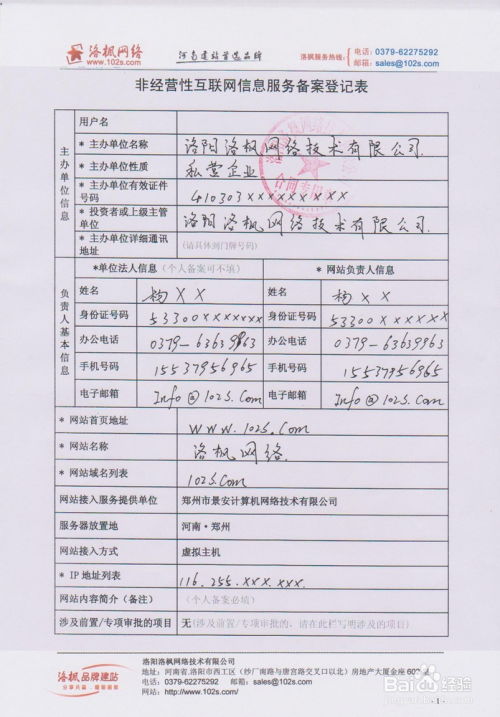 洛枫网络
www.102s.com
河南建站首选品牌
洛枫服务热线:
电话: 0379-62275292
邮箱: sales@102s.com
非经营性互联网信息服务备案登记表
主办单位信息
用户名
* 主办单位名称 洛阳洛枫网络技术有限公司.
* 主办单位性质 私营企业
* 主办单位有效证件号码 410303xxxxxxxxx
* 投资者或上级主管单位 洛阳洛枫网络技术有限公司.
* 主办单位详细通讯地址 (请具体到门牌号码)
合同专用章
负责人基本信息
*单位法人信息(个人备案可不填) * 网站负责人信息
姓名 杨XX 姓名 杨XX
身份证号码 53300xxxxxxx 身份证号码 53300xxxxxx
办公电话 0379-63639963 办公电话 0379-63639963
手机号码 15537956965 手机号码 15537956965
电子邮箱 Info@102S.Com 电子邮箱 Info@102S.Com
* 网站首页地址 www.102S.Com
* 网站名称 洛枫网络.
* 网站域名列表 102S.Com
网站接入服务提供单位 郑州市景安计算机网络技术有限公司
服务器放置地 河南·郑州
网站接入方式 虚拟主机
* IP 地址列表 116.255.xxx.xxx.
网站内容简介(备注) (个人备案必填)
涉及前置/专项审批的项目 无(涉及前置/专项审批的、请在此栏写明涉及的项目)
洛枫品牌建站
洛阳洛枫网络技术有限公司
地址: 河南省.洛阳市西工区(纱厂南路与唐宫路交叉口以北)房地产大厦金座 602室
电话: 0379-62275292 邮箱: sales@102s.com
网站: http://www.102s.com
Baidu经验
jingyan.baidu.com
- 1 -